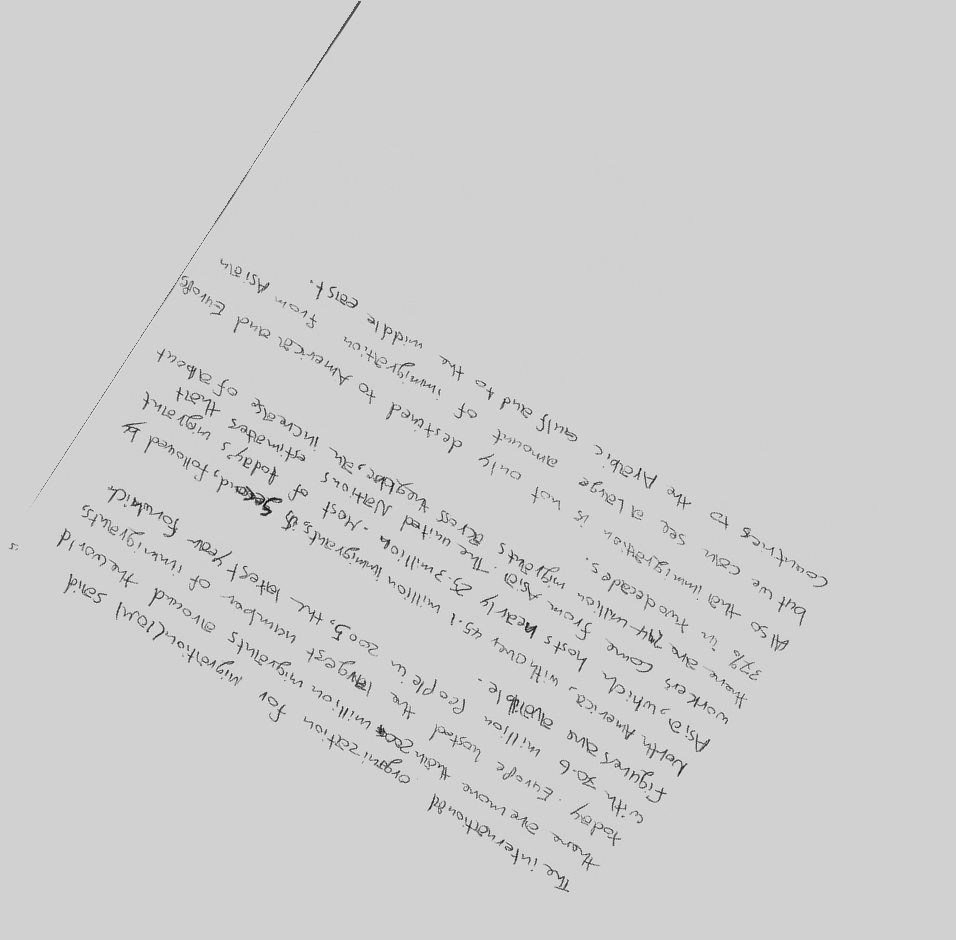 The international organization for migration (IOM) said
there are more than 200 million migrants around the world
today. Europe hosted the largest number of immigrants,
with 70.6 million People in 2005, the latest year for which
figures are availble.
North America, with over 45.1 million immigrants, is second, followed by
Asia, which hosts nearly 25.3 million. Most of today's migrant
workers come from Asia. The united Nations estimates that
there are million migrants across the globe, an increase of about
37% in two decades.
Also that immigration is not only destined to America and Europe
but we can see a large amount of immigration from Asian
Countries to the Arabic Gulf and to the middle east.